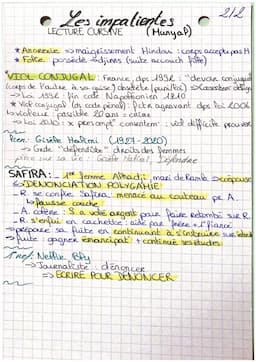 Les impatientes 2/2
LECTURE CURSIVE (Hunyaf)
* Anorexie → maigrissement Hindou : corps accepte pas H
* Folie : possédée djinns (suite accouch fille)
VIOL CONJUGAL : France, dps 1992 "devoir conjugal
(corps de l'autre à sa guise) obsolète (puni/loi)
→ Loi 1992 : fin code Napoléonien 1810
* Viol conjugal (dr code pénal) : fctr aggravant dps loi 2006
→ violeur : passible 20 ans = crime
→ Loi 2010 : x présompt° consentem : viol difficile prouver
Gisèle Halimi (1927-2020)
→ Gade "défenseuse" droits des femmes
SAFIRA : - 1re femme Alhadji mari de Ramla → coépouse
→ DÉNONCIATION POLYGAMIE
- R se confie Safira : menacé au couteau pr A.
↳ fausse couche
- A. colère : S a volé argent pour faire retomber sur R.
- R s'enfuit en cachette : aidé par frère + "fiancé"
→ prépare sa fuite en continuant à s'instruire sur
→ fuite : gagner émancipat° + continue ses études
→ Journaliste : dénoncer
→ ÉCRIRE POUR DÉNONCER